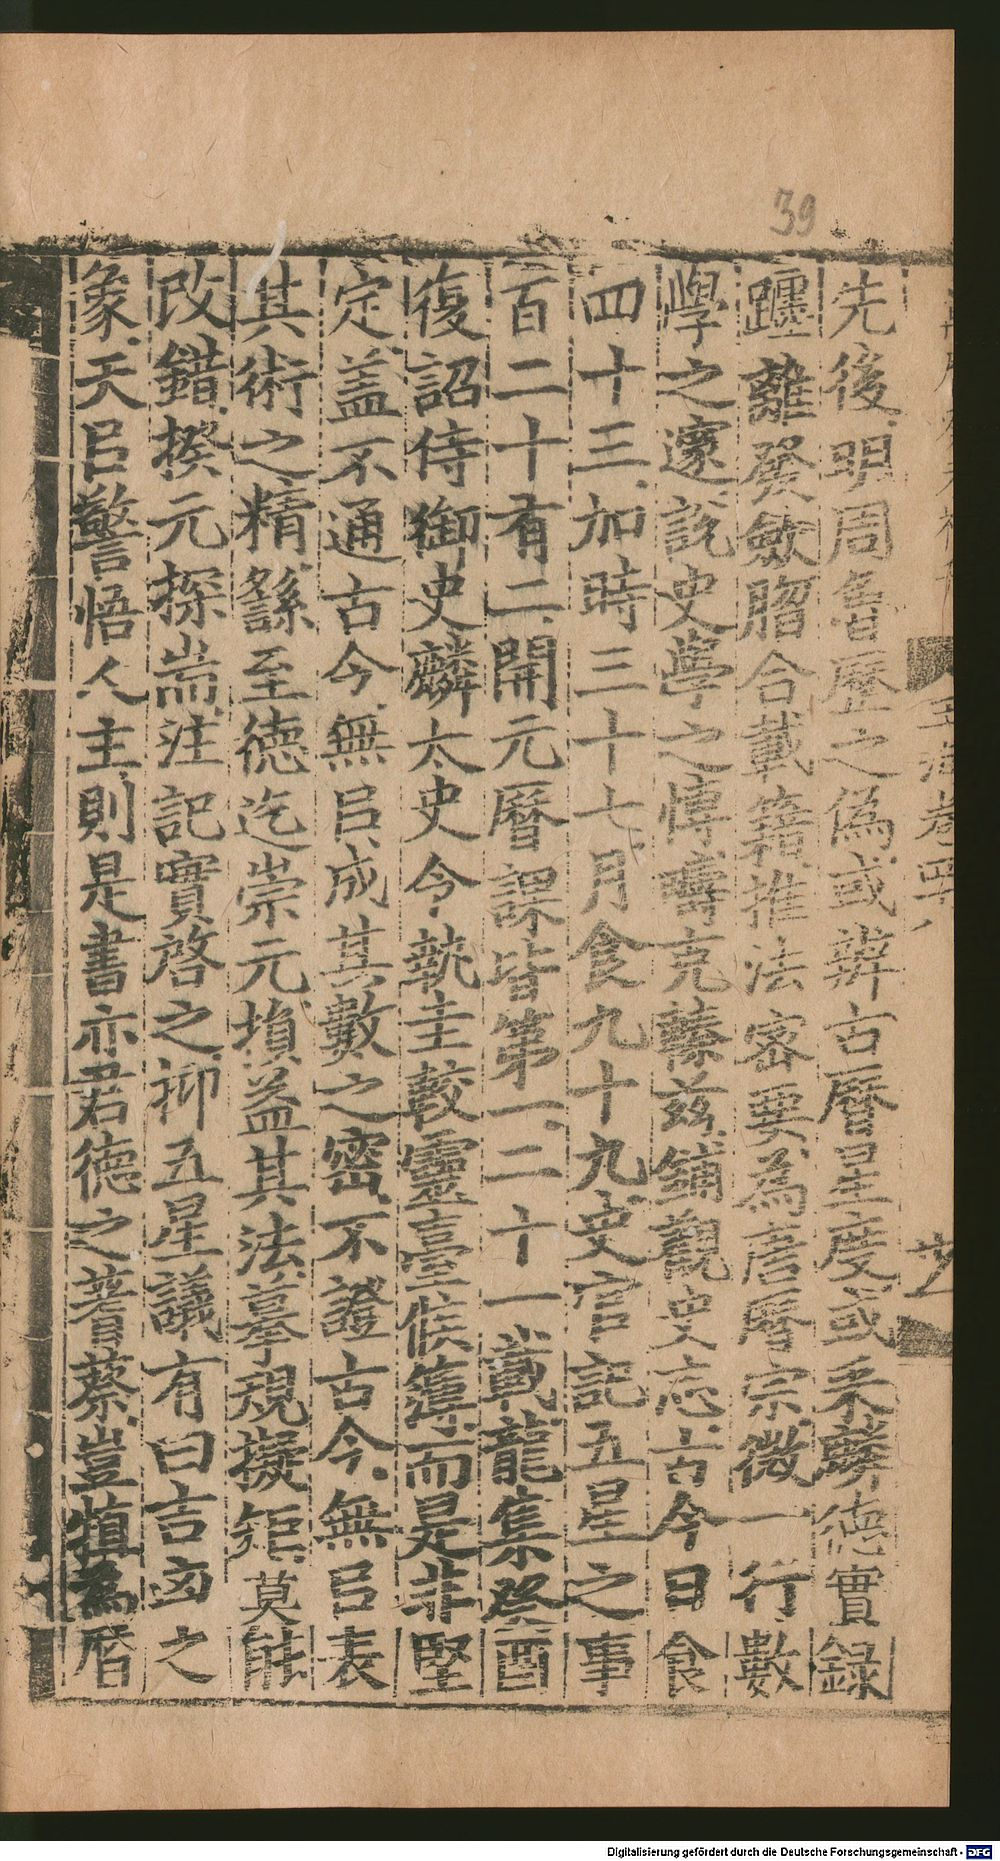 39
先後明周魯歷之偽或辨古曆星度或釆麟德實録
躔離發斂䐇合載籍推法密要為唐曆宗微一行數
學之邃說史學之愽疇克臻茲鋪觀史志古今日食
四十三加時三十七月食九十九史官記五星之事
百二十有二開元曆課皆第一二十一載龍集癸酉
復詔侍御史麟太史令執圭較靈臺候簿而是非堅
定蓋不通古今無㠯成其數之密不證古今無㠯表
其術之精繇至德迄崇元損益其法摹規擬矩莫能
改錯揆元探耑注記實啓之抑五星議有曰言凶之
象天㠯警悟人主則是書亦君德之蓍蔡豈慎為曆
玉海卷四
Digitalisierung gefördert durch die Deutsche Forschungsgemeinschaft - DFG